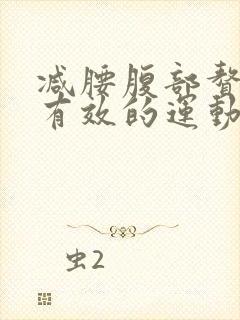 减腰腹部赘
有效的运動
虫2